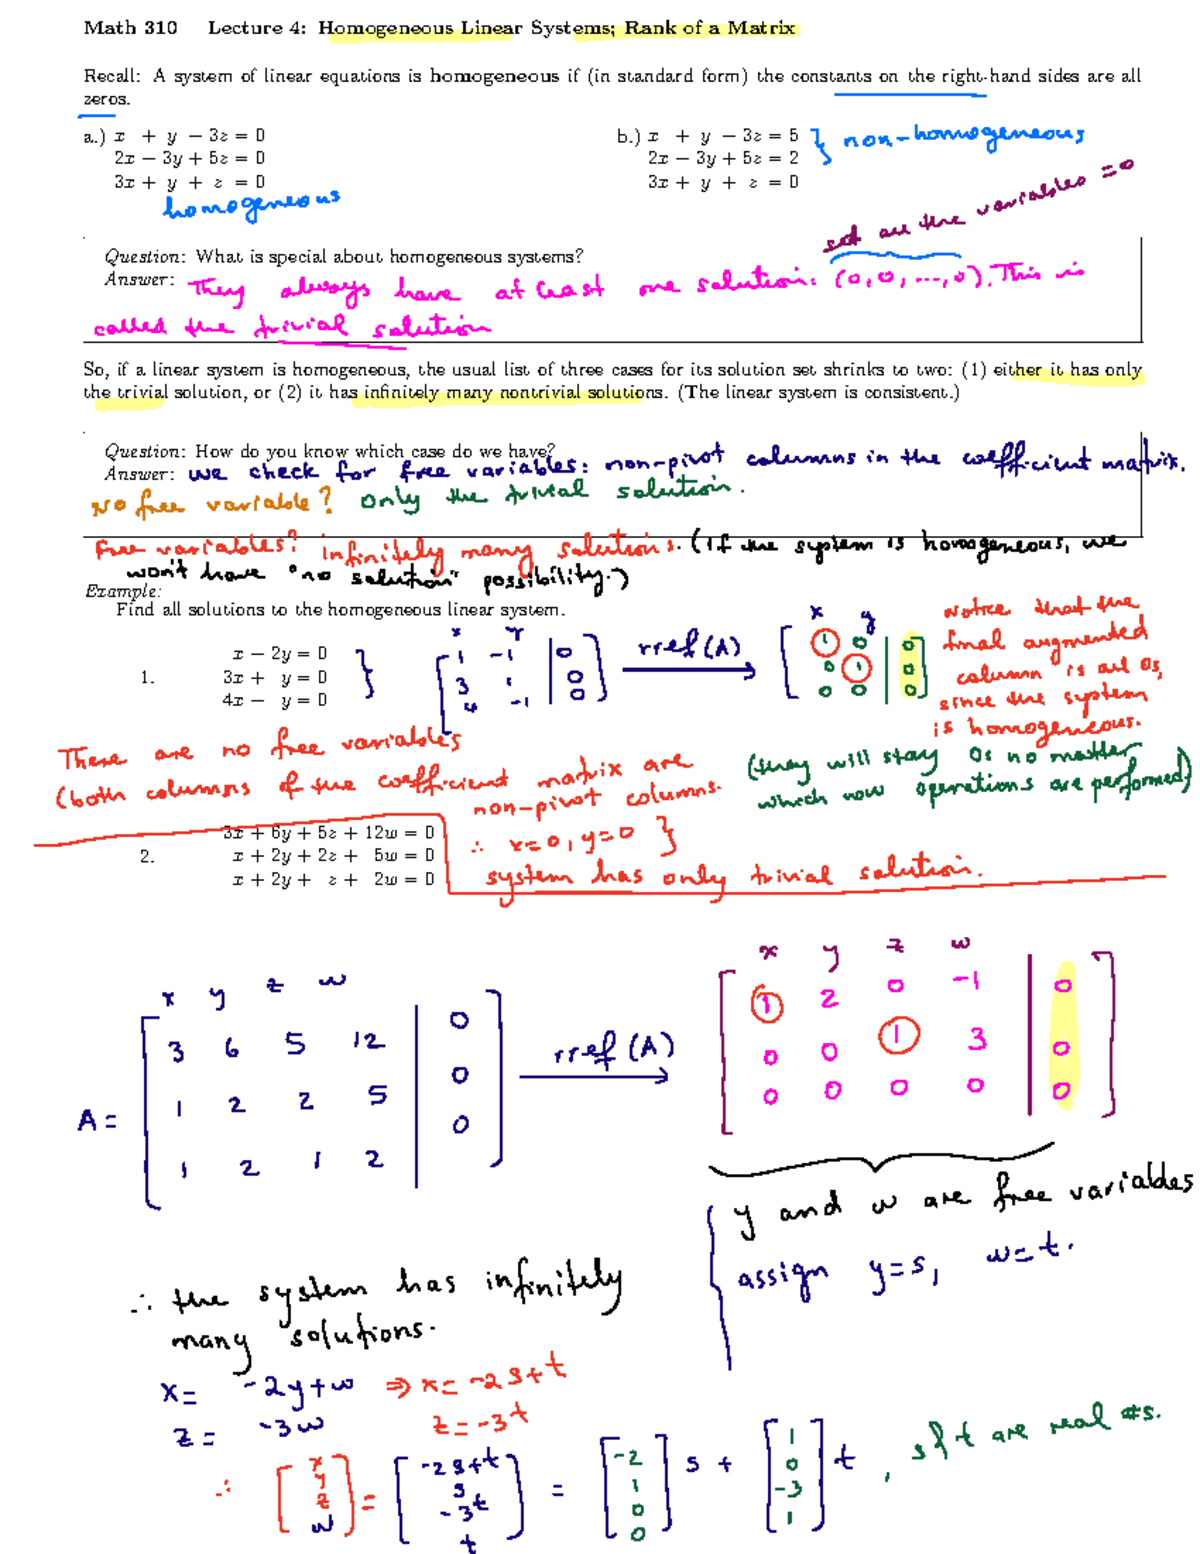 Math 310 Lecture 4: Homogeneous Linear Systems; Rank of a Matrix
Recall: A system of linear equations is homogeneous if (in standard form) the constants on the right-hand sides are all
zeros.
a.) x + y − 3z = 0
2x − 3y + 5z = 0
3x + y + z = 0
homogeneous
b.) x + y − 3z = 5 } non-homogeneous
2x − 3y + 5z = 2
3x + y + z = 0
set all the variables = 0
Question: What is special about homogeneous systems?
Answer: They always have at least one solution: (0,0,...,0). This is
called the trivial solution
So, if a linear system is homogeneous, the usual list of three cases for its solution set shrinks to two: (1) either it has only
the trivial solution, or (2) it has infinitely many nontrivial solutions. (The linear system is consistent.)
Question: How do you know which case do we have?
Answer: we check for free variables: non-pivot columns in the coefficient matrix.
No free variable? only the trivial solution.
Free variables? infinitely many solutions. (if the system is homogeneous, we
won't have "no solution" possibility.)
Example:
Find all solutions to the homogeneous linear system.
1.
x − 2y = 0
3x + y = 0
4x − y = 0
}
x y
[ 1 -1 | 0 ]
3 1 | 0
4 -1 | 0
rref(A)
x y
[ 1 0 | 0 ]
0 1 | 0
0 0 | 0
Notice that the
final augmented
column is all 0s,
since the system
is homogeneous.
(they will stay 0s no matter
which row operations are performed)
There are no free variables
(both columns of the coefficient matrix are
non-pivot columns.
∴ x=0, y=0 }
system has only trivial solution.
2.
3x + 6y + 5z + 12w = 0
x + 2y + 2z + 5w = 0
x + 2y + z + 2w = 0
x y z w
A = [ 3 6 5 12 | 0 ]
1 2 2 5 | 0
1 2 1 2 | 0
rref(A)
x y z w
[ 1 2 0 -1 | 0 ]
0 0 1 3 | 0
0 0 0 0 | 0
y and w are free variables
assign y=s, w=t.
∴ the system has infinitely
many solutions.
x = -2y+w ⇒ x = -2s+t
z = -3w z = -3t
∴ [ x y z w ] = [ -2s+t s -3t t ] = [ -2 1 0 0 ] s + [ 1 0 -3 1 ] t , s & t are real #s.